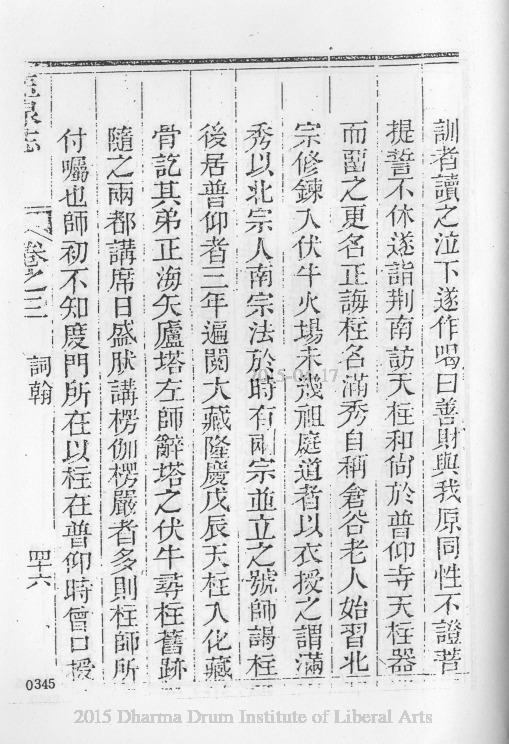 訓者讀之泣下遂作喝曰善財與我原同性不證菩
提誓不休遂詣荆南訪天柱和尙於普仰寺天柱器
而畱之更名正誨柱名滿秀自稱倉谷老人始習北
宗修鍊入伏牛火場未幾祖庭道者以衣授之謂滿
秀以北宗人南宗法於時有兩宗並立之號師謁柱
後居普仰者三年遍閱大藏隆慶戊辰天柱入化藏
骨訖其弟正海矢廬塔左師辭塔之伏牛尋柱舊跡
隨之兩都講席日盛肰講楞伽楞嚴者多則柱師所
付囑也師初不知度門所在以柱在普仰時曾口授
玉泉志
卷之三
詞翰
四十六
0345
2015 Dharma Drum Institute of Liberal Arts